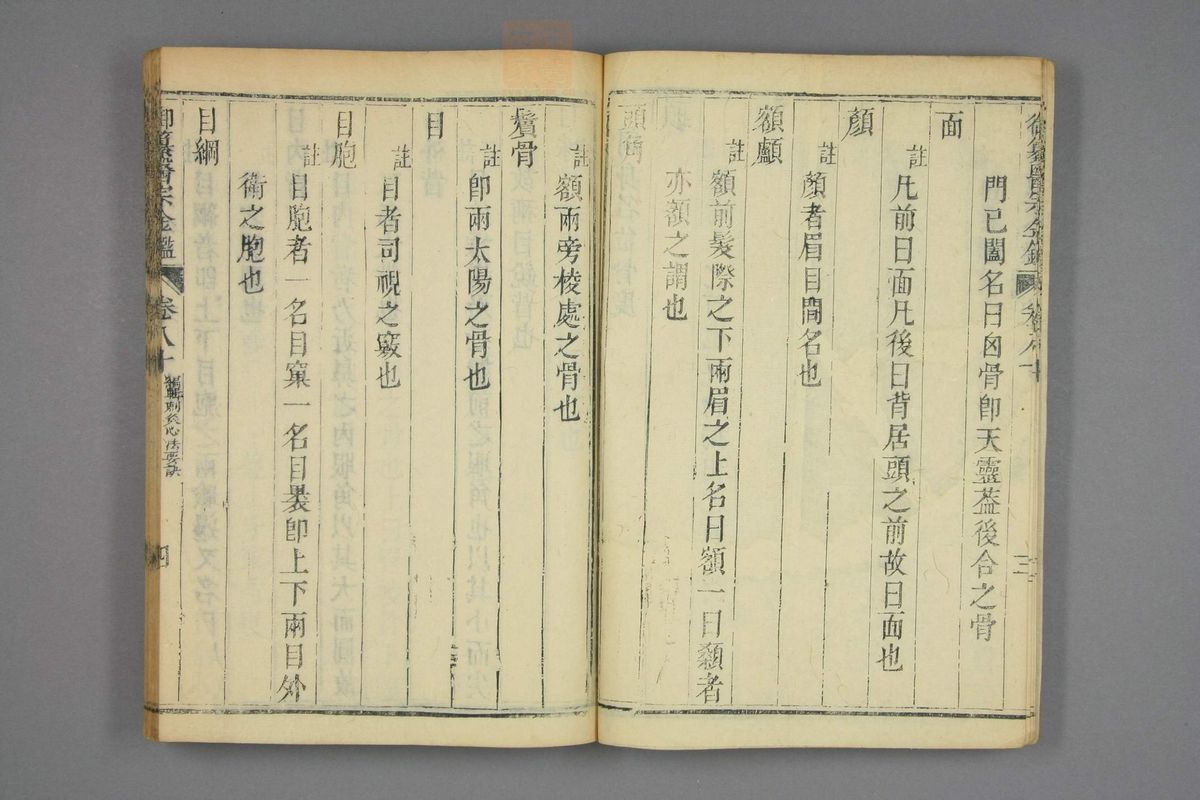 門已闔名曰囟骨卽天靈葢後合之骨
面
註凡前曰面凡後曰背居頭之前故曰面也
顏
註顏者眉目間名也
額顱
註額前髮際之下兩眉之上名曰額一曰顙者
亦額之謂也
頭角
註額兩旁棱處之骨也
鬢骨
註卽兩太陽之骨也
目
註目者司視之竅也
目胞
註目胞者一名目窠一名目裹卽上下兩目外
衛之胞也
目綱
御纂醫宗金鑑
卷八十
編輯刺灸心法要訣
四